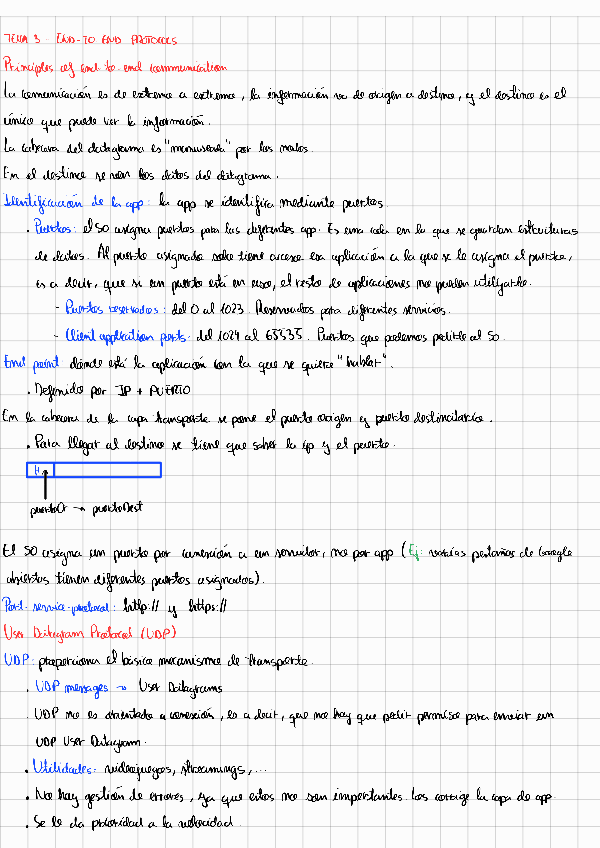 TEMA 3 - END-TO END PROTOCOLS
Principles of end-to-end communication
La comunicación es de extremo a extremo, la información va de origen a destino, y el destino es el
único que puede ver la información.
La cabecera del datagrama es "manuseada" por los nodos.
En el destino se ven los datos del datagrama.
Identificación de la app: la app se identifica mediante puertos.
. Puertos: el SO asigna puertos para las diferentes app. Es una cola en la que se guardan estructuras
de datos. Al puerto asignado solo tiene acceso esa aplicación a la que se le asigna el puerto,
es a decir, que si un puerto está en uso, el resto de aplicaciones no pueden utilizarlo.
- Puertos reservados: del 0 al 1023. Reservados para diferentes servicios.
- Client application ports: del 1024 al 65535. Puertos que podemos pedirle al SO.
End point: dónde está la aplicación con la que se quiere "hablar".
. Definido por IP + PUERTO
En la cabecera de la capa transporte se pone el puerto origen y puerto destinatario.
. Para llegar al destino se tiene que saber la ip y el puerto.
H.
puertoOr → puertoDest
El SO asigna un puerto por conexión a un servidor, no por app (Ej: varias pestañas de Google
abiertas tienen diferentes puertos asignados).
Port-service-protocol: http:// y https://
User Datagram Protocol (UDP)
UDP: proporciona el básico mecanismo de transporte.
. UDP messages → User Datagrams
. UDP no es orientado a conexión, es a decir, que no hay que pedir permiso para enviar un
UDP User Datagram.
. Utilidades: videojuegos, streamings, ...
. No hay gestión de errores, ya que estos no son importantes. Los corrige la capa de app
. Se le da prioridad a la velocidad.